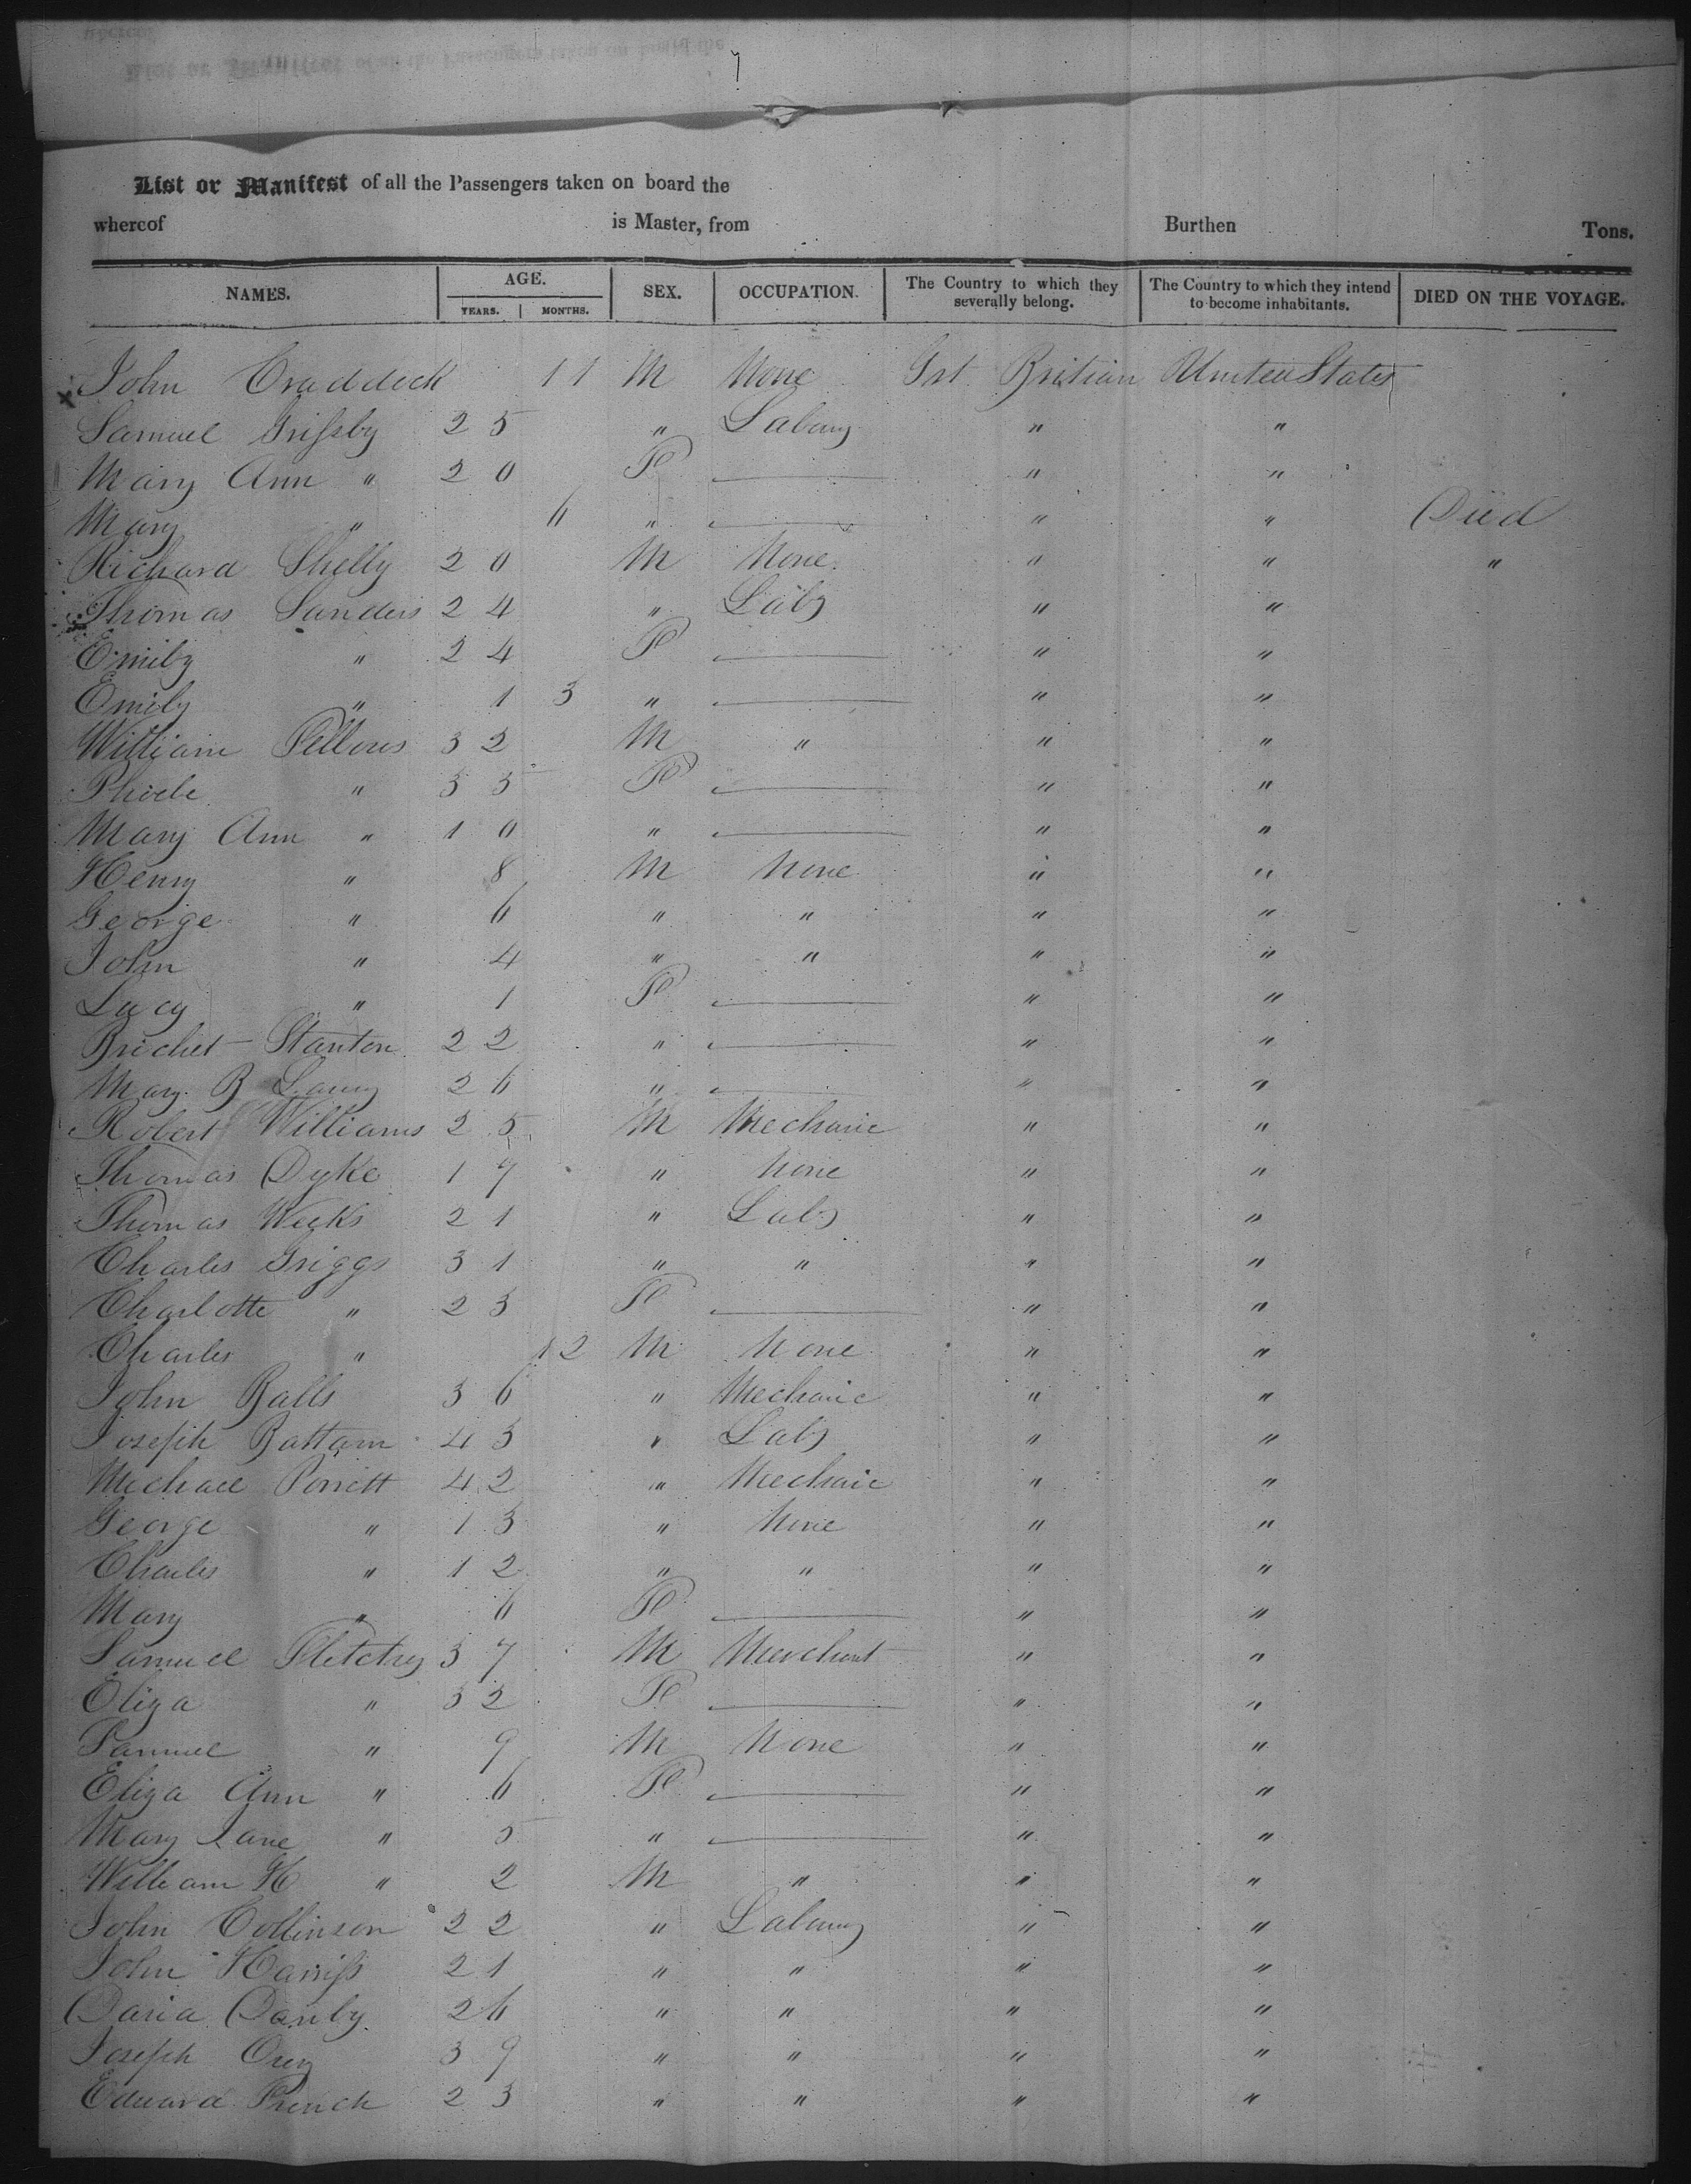 List or Manifest of all the Passengers taken on board the
whereof is Master, from Burthen Tons.
NAMES. AGE. YEARS. MONTHS. SEX. OCCUPATION. The Country to which they severally belong. The Country to which they intend to become inhabitants. DIED ON THE VOYAGE.
John Craddock 11 M None Grt Britian United States
Samuel Grissby 25 " " "
Mary Ann " 20 F " "
Mary " 6 " " " Died
Richard Shelly 20 M None " " "
Thomas Sanders 24 " Labr " "
Emily " 24 F " "
Emily " 1 3 " " "
William Fellows 32 M " " "
Phoebe " 35 F " "
Mary Ann " 10 " " "
Henry " 8 M None " "
George " 6 " " " "
John " 4 " " " "
Lucy " 1 F " "
Brichet Stanton 22 " " "
Mary B 26 " " "
Robert Williams 25 M Mechanic " "
Thomas Dyke 17 " None " "
Thomas Weeks 21 " Labr " "
Charles Griggs 31 " " " "
Charlotte " 23 F " "
Charles " 12 M None " "
John Balls 36 " Mechanic " "
Joseph Battam 43 " Labr " "
Michael Porrett 42 " Mechaic " "
George " 13 " None " "
Charles " 12 " " " "
Mary " 6 F " "
Samuel Fletcher 37 M Merchant " "
Eliza " 32 F " "
Samuel " 9 M None " "
Eliza Ann " 6 F " "
Mary Jane " 5 " " "
William H " 2 M " " "
John Collinson 22 " " "
John Harriss 21 " " " "
Danby 26 " " " "
Joseph 39 " " " "
Edward French 23 " " " "